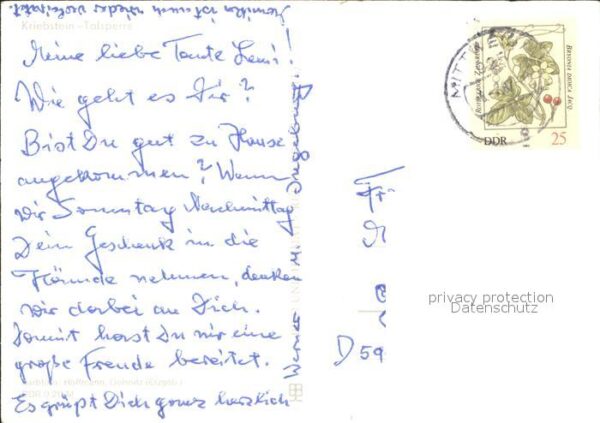 Kriebstein - Talsperre
Meine liebe Tante Leni!
Wie geht es Dir?
Bist Du gut zu Hause
angekommen? Wenn
wir Sonntag Nachmittag
Dein Geschenk in die
Hände nehmen, denken
wir dabei an Dich.
Somit hast Du mir eine
große Freude bereitet.
Es grüßt Dich ganz herzlich
Werner u. Ingeburg
ist auch wieder verheiratet.
Rotbeerige Zaunrübe
BRYONIA DIOICA JACQ.
DDR 25
MITTWEI
Fr
D 59
privacy protection
Datenschutz